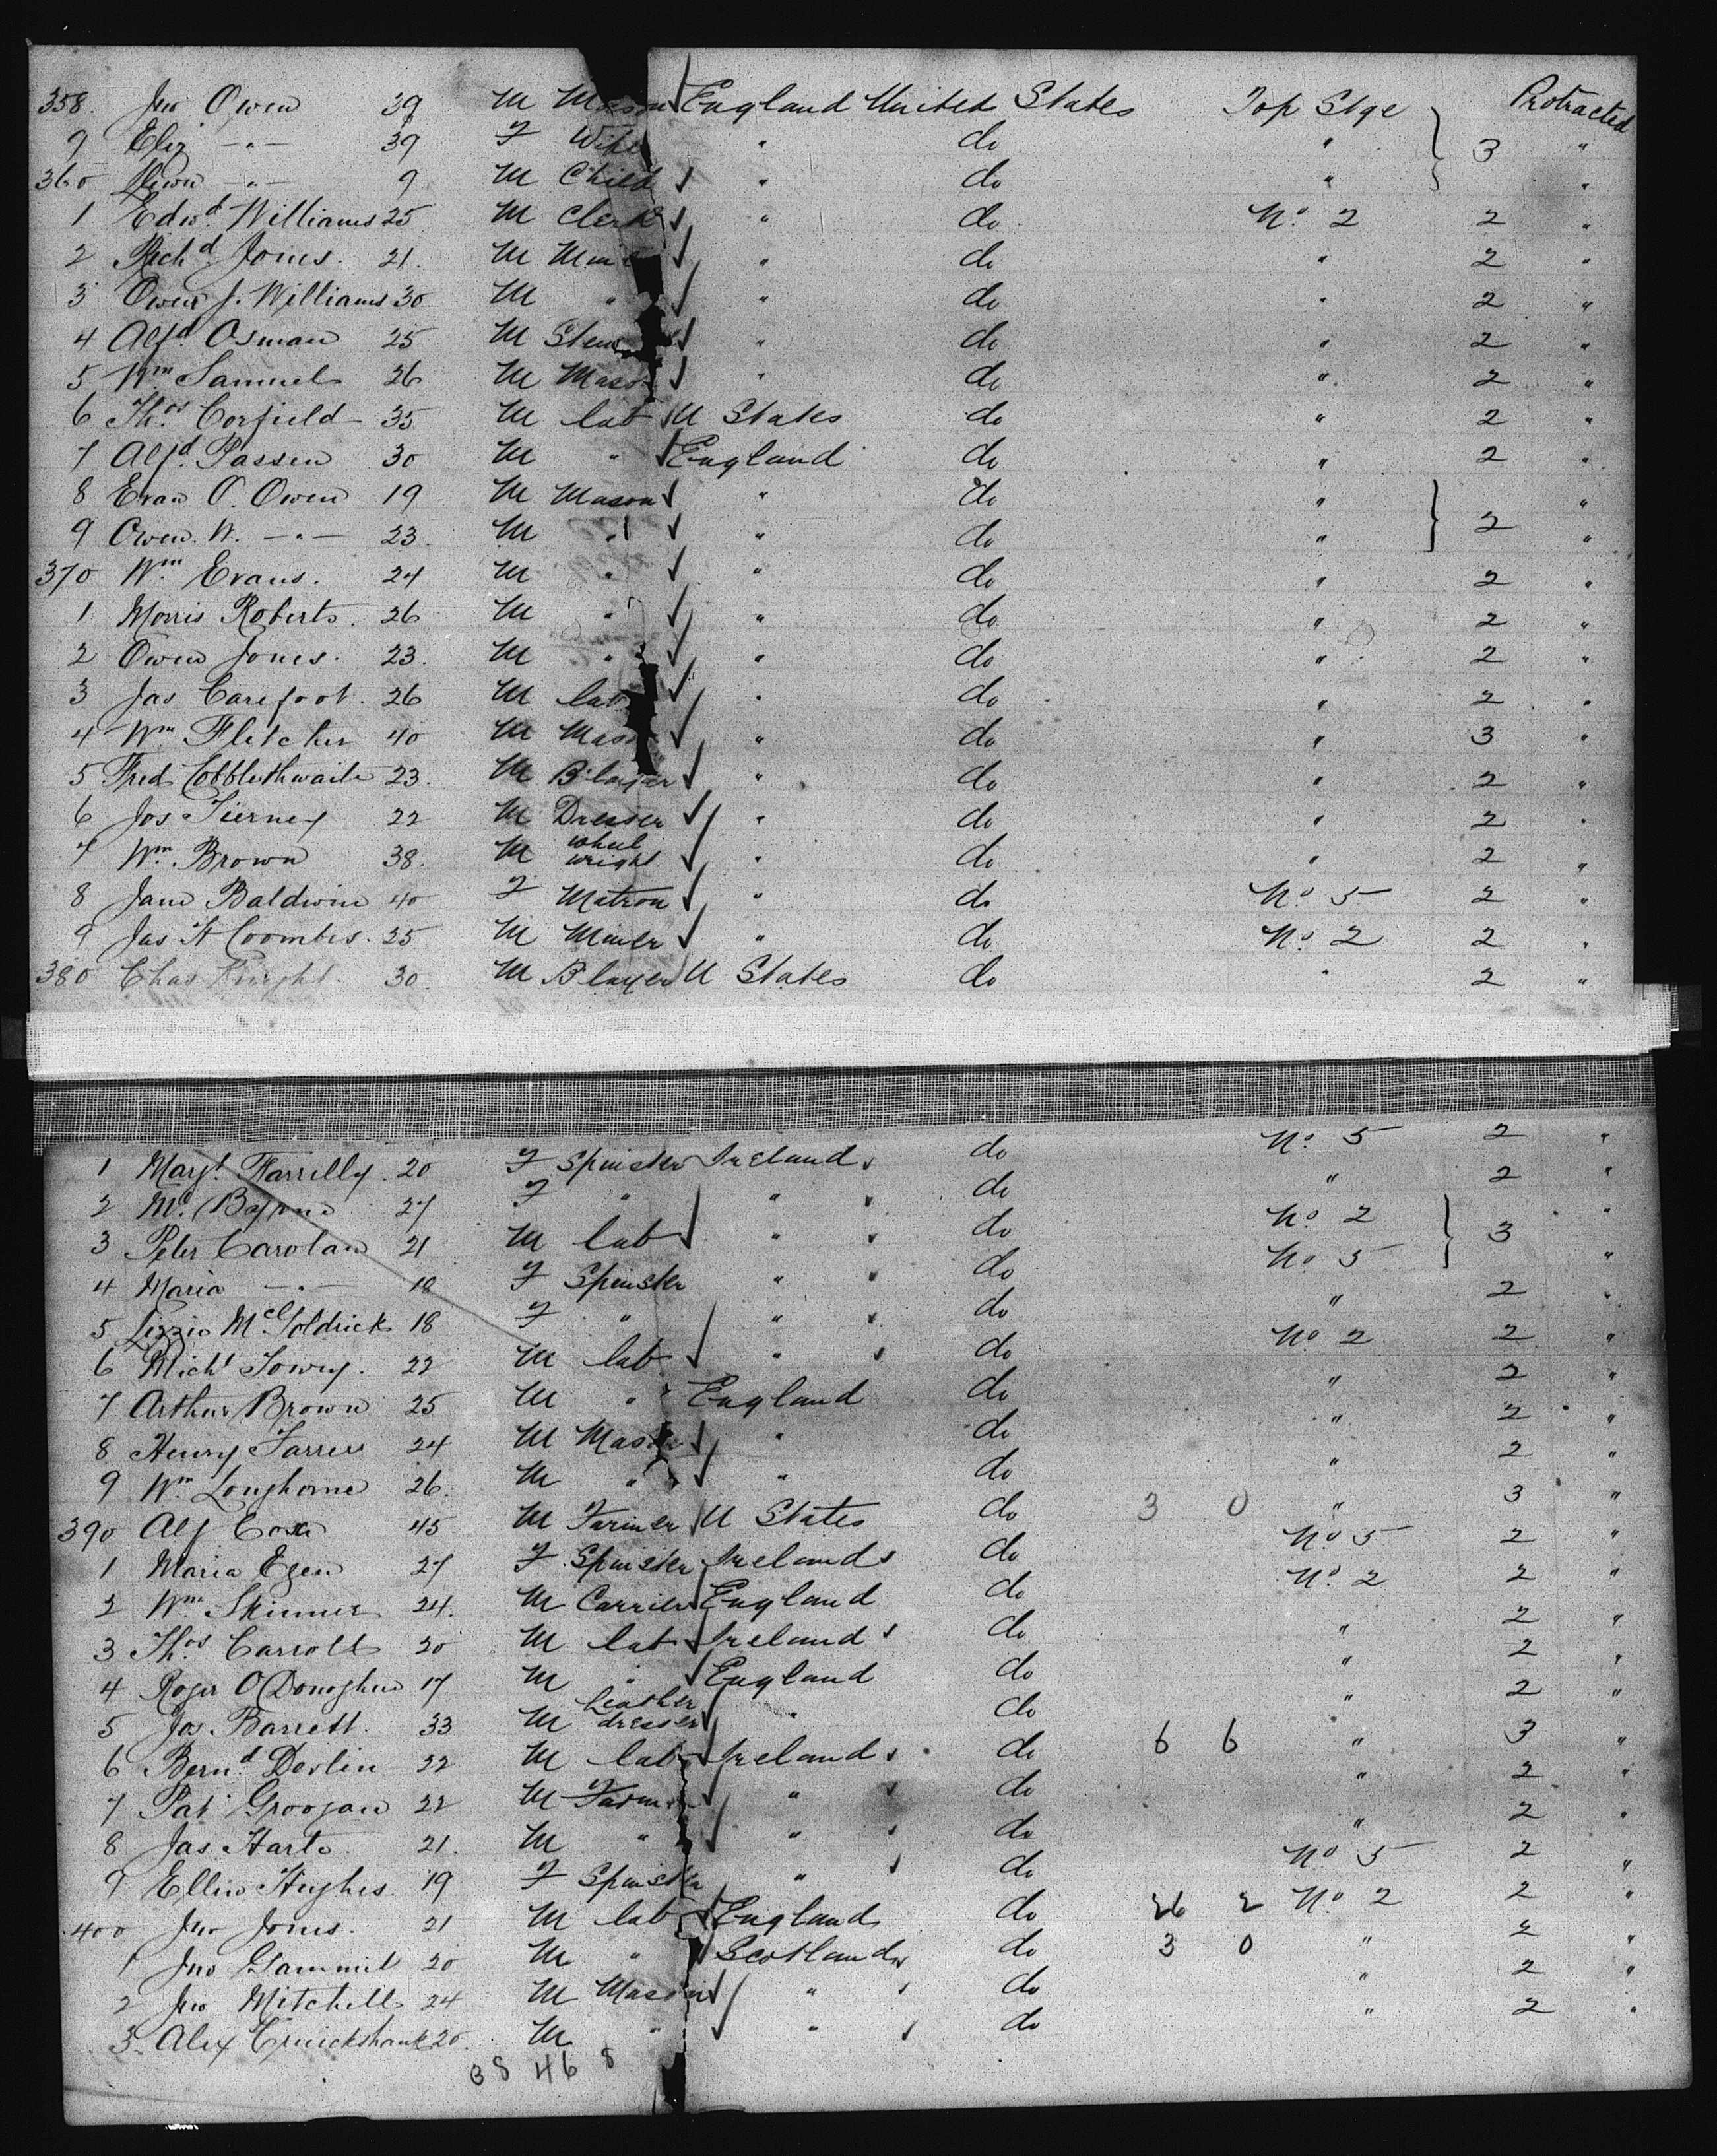 358. Jno Owen 39 M Mason England United States Top Stge Protracted
9 Eliz -"- 39 F Wife " do " 3 "
360 -"- 9 M Child " do " "
1 Edwd. Williams 25 M Clerk " do No. 2 2 "
2 Richd. Jones. 21. M Miner " do " 2 "
3 Owen J. Williams 30 M " " do " 2 "
4 Alfd Osman 25 M " do " 2 "
5 Wm Samuel 26 M Mason " do " 2 "
6 Thos. Corfield 35 M lab U States do " 2 "
7 Alfd. Passen 30 M " England do " 2 "
8 Evan O. Owen 19 M Mason " do " "
9 Owen. W. -"- 23. M " " do " 2 "
370 Wm. Evans. 24 M " " do " 2 "
1 Morris Roberts. 26 M " " do " 2 "
2 Owen Jones. 23. M " " do " 2 "
3 Jas Carefoot. 26 M lab " do " 2 "
4 Wm. Fletcher 40 M Mason " do " 3 "
5 Fred Cobblethwaite 23. M B'layer " do " 2 "
6 Jos Tierney 22 M Dresser " do " 2 "
7 Wm. Brown 38. M wheel wright " do " 2 "
8 Jane Baldwin 40 F Matron " do No. 5 2 "
9 Jas H Coombes. 25 M Miner " do No. 2 2 "
380 Chas Knight. 30. M B'layer U States do " 2 "
1 Margt. Farrelly. 20 F Spinster Ireland do No. 5 2 "
2 27 F " " do " 2 "
3 Peter Carolan 21 M lab " do No. 2 3 "
4 Maria -"- 18 F Spinster " do No. 5 "
5 Lizzie McGoldrick 18 F " " do " 2 "
6 Michl Towey. 22 M lab " do No. 2 2 "
7 Arthur Brown 25 M " England do " 2 "
8 Henry Farrer 24 M Mason " do " 2 "
9 Wm Longhorne 26. M " " do " 2 "
390 Alf Coxe 45 M Farmer U States do 3 0 " 3 "
1 Maria Egen 27 F Spinster Ireland do No. 5 2 "
2 Wm. Skinner 24. M Carrier England do No. 2 2 "
3 Thos. Carroll 20 M lab Ireland do " 2 "
4 Roger O'Donoghue 17 M " England do " 2 "
5 Jos. Barrett. 33 M leather dresser " do " 2 "
6 Bernd. Devlin 22 M lab Ireland do 6 6 " 3 "
7 Pat Groogan 22 M Farmer " do " 2 "
8 Jas. Harte 21. M " " do " 2 "
9 Ellen Hughes. 19 F Spinster " do No 5 2 "
400 Jno Jones. 21 M lab England do 26 2 No. 2 2 "
1 Jno Gammil 20 M " Scotland do 3 0 " 2 "
2 Jno Mitchell 24 M Mason " do " 2 "
3. Alex Cruickshank 20. M " " do " 2 "
38 46 8